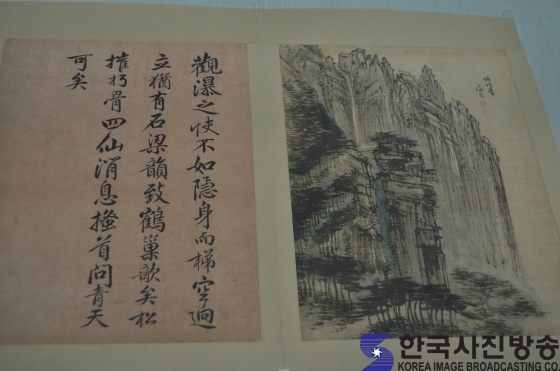 觀瀑之快不如隱身而梯空迥
立猶有石梁韻致鶴巢欹矣松
摧朽骨四仙消息搔首問青天
可矣
한국사진방송
KOREA IMAGE BROADCASTING CO